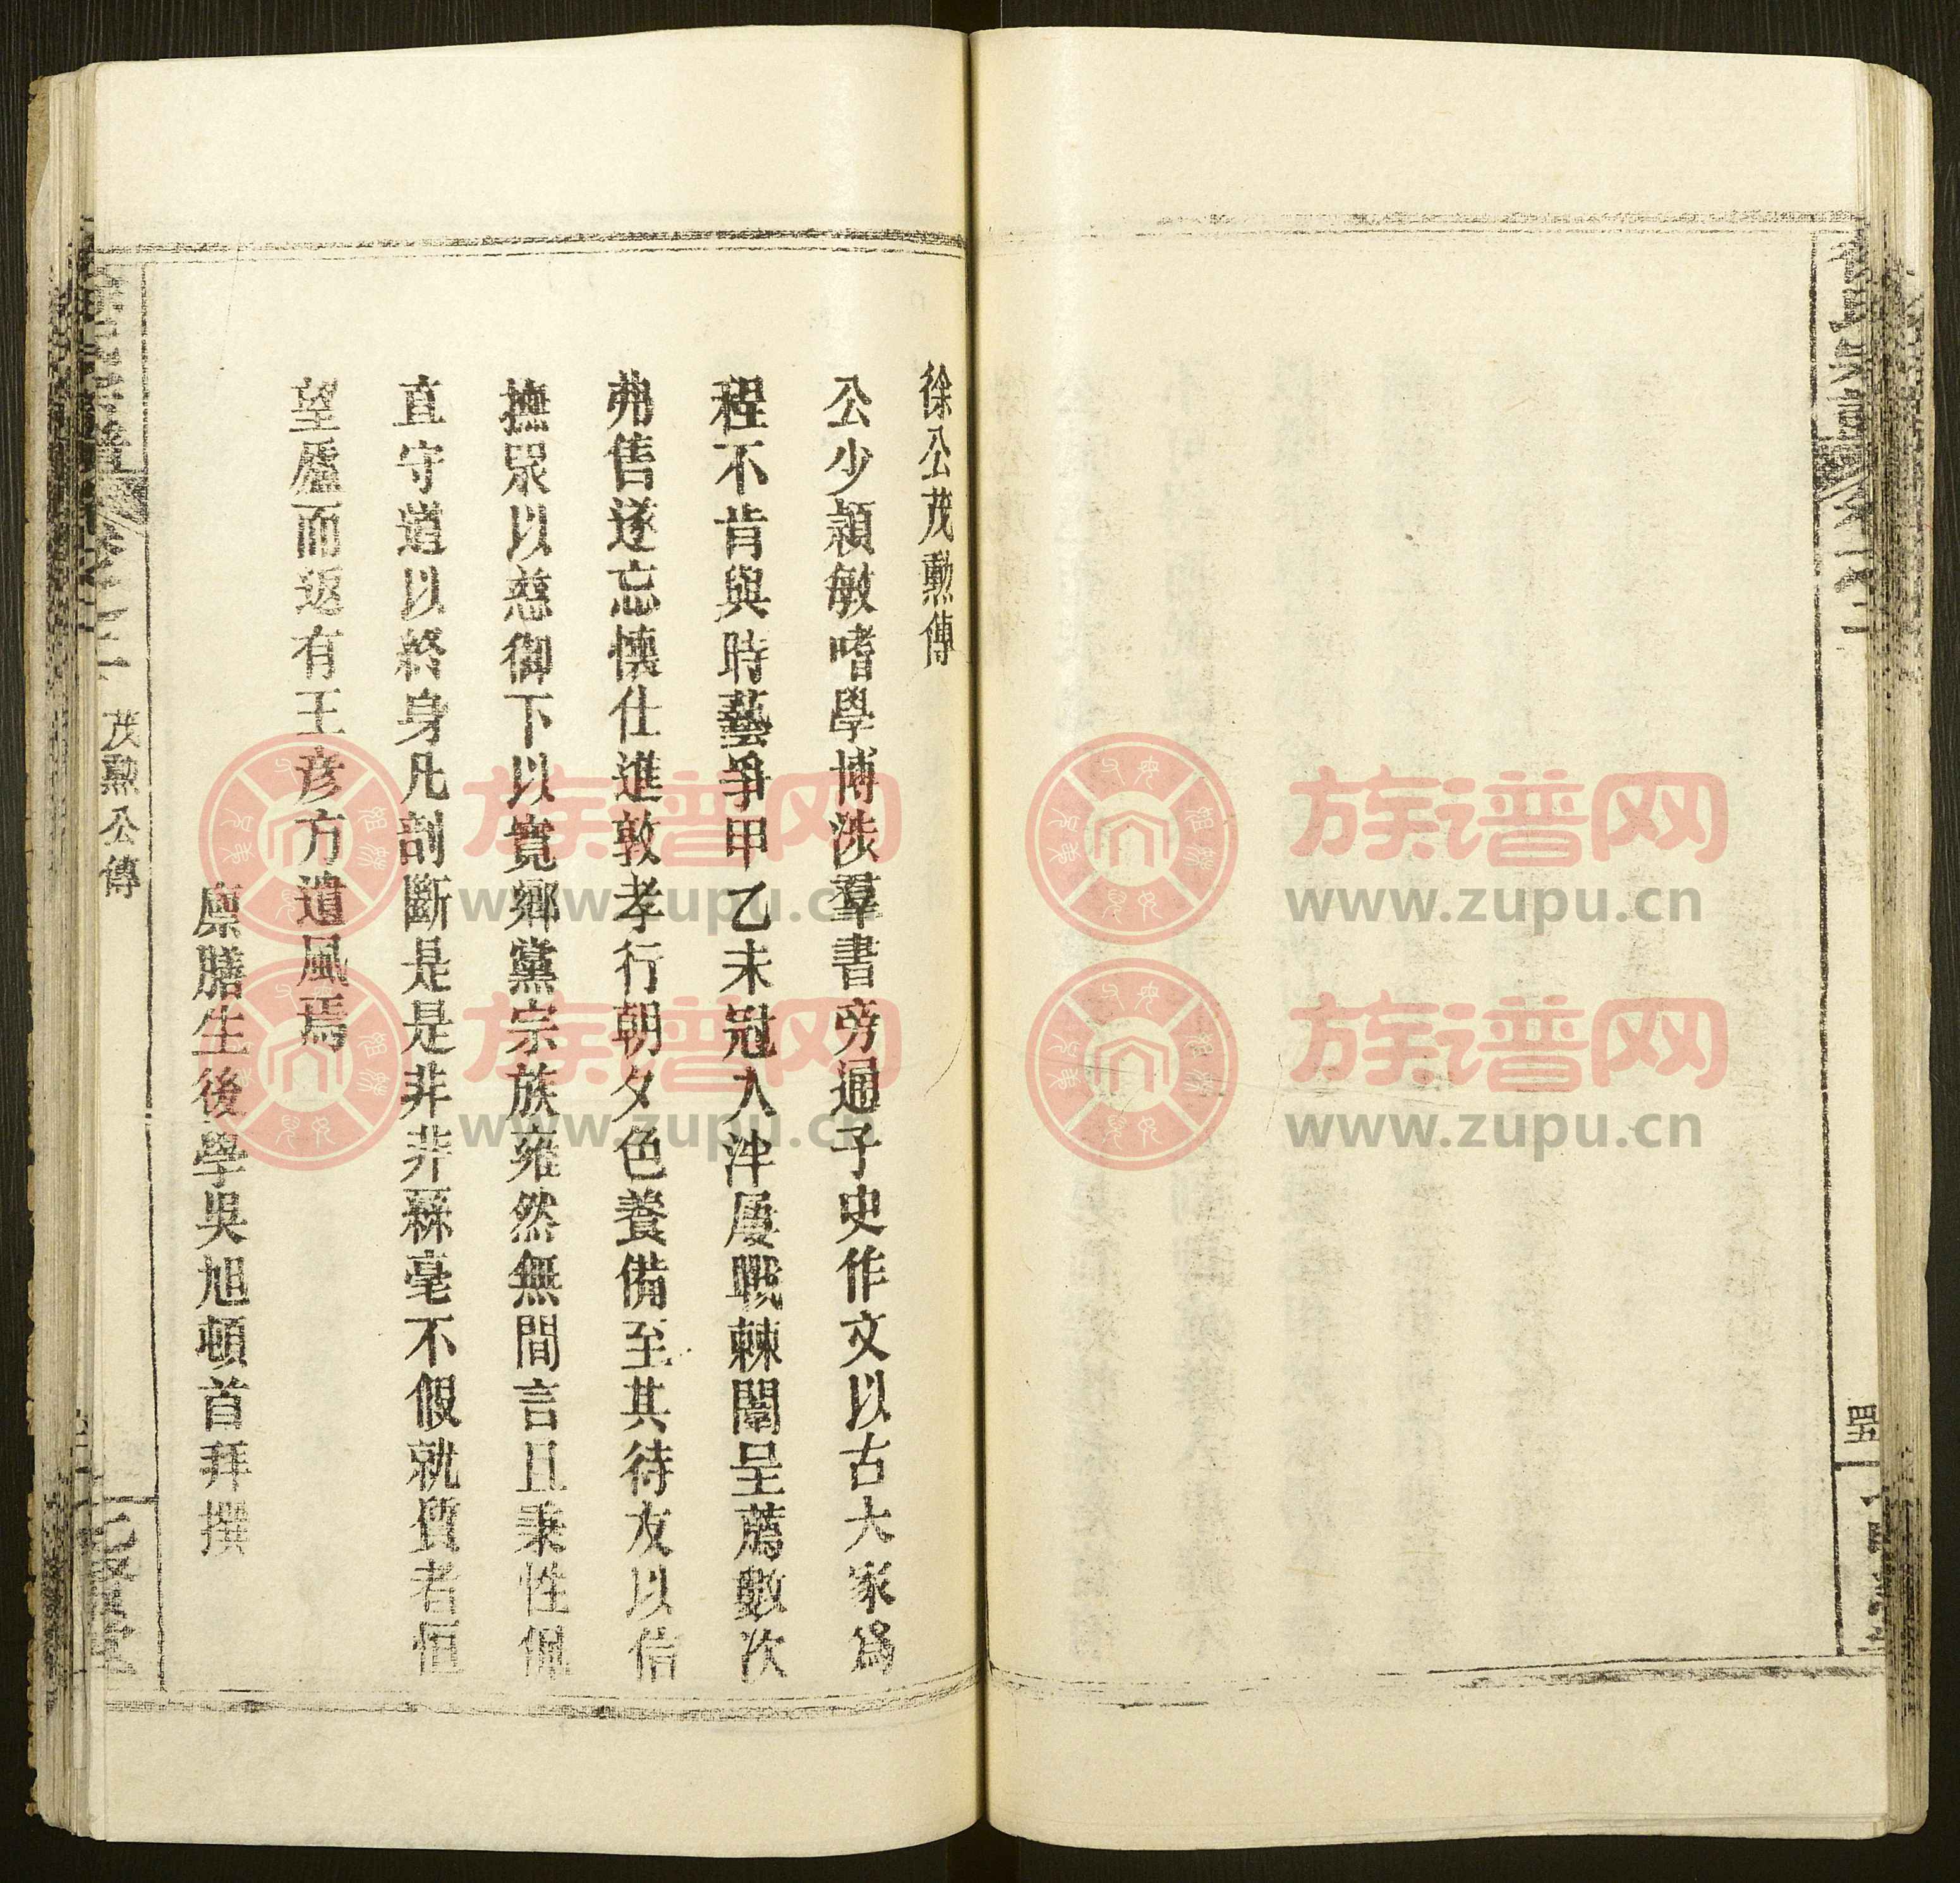 四五
徐公茂勲傳
公少穎敏嗜學博涉羣書旁通子史作文以古大家爲
程不肯與時藝爭甲乙未冠入泮屢戰棘闈呈薦數次
弗售遂忘懷仕進敦孝行朝夕色養備至其待友以信
撫眾以慈御下以寬鄉黨宗族雍然無間言且秉性佩
直守道以終身凡剖斷是是非非絲毫不假就質者恒
望廬而返有王彦方遺風焉
廩膳生後學吳旭頓首拜撰
茂勲公傳
族谱网
www.zupu.cn
族谱网
www.zupu.cn
族谱网
www.zupu.cn
族谱网
www.zupu.cn